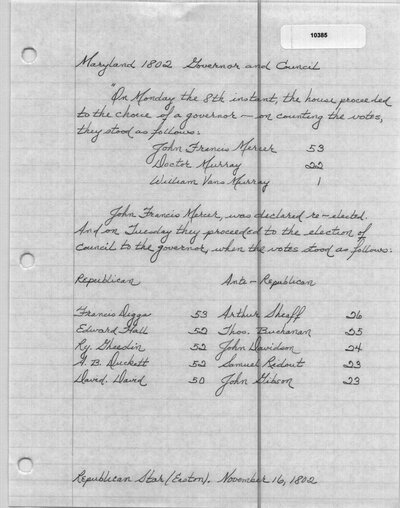 10385
Maryland 1802 Governor and Council
"On Monday the 8th instant, the house proceeded
to the choice of a governor — on counting the votes,
they stood as follows:
John Francis Mercer 53
Doctor Murray 22
William Vans Murray 1
John Francis Mercer, was declared re-elected.
And on Tuesday they proceeded to the election of
council to the governor, when the votes stood as follows:
Republican Anti-Republican
Francis Digges 53 Arthur Shaaff 26
Edward Hall 52 Thos. Buchanan 25
Ry. Ghiselin 52 John Davidson 24
A. B. Duckett 52 Samuel Ridout 23
David. David 50 John Gibson 23
Republican Star (Easton). November 16, 1802